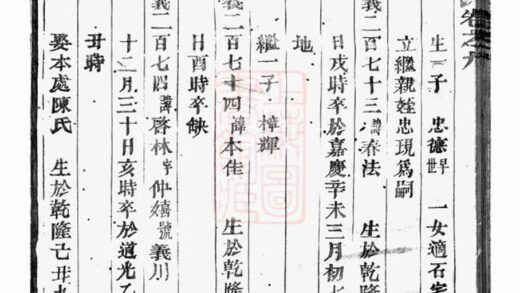 卷之
生一子 忠德早世 一女適石
立繼親姪忠現爲嗣
義二百七十三 諱春法 生於乾隆
日戌時卒於嘉慶辛未三月初
地
繼一子 樟輝
義二百七十四 諱本佳 生於乾隆
日酉時卒缺
義二百七 諱啓林字仲嬉號義川
十二月三十日亥時卒於道光
丑時
娶本處陳氏 生於乾隆己丑九